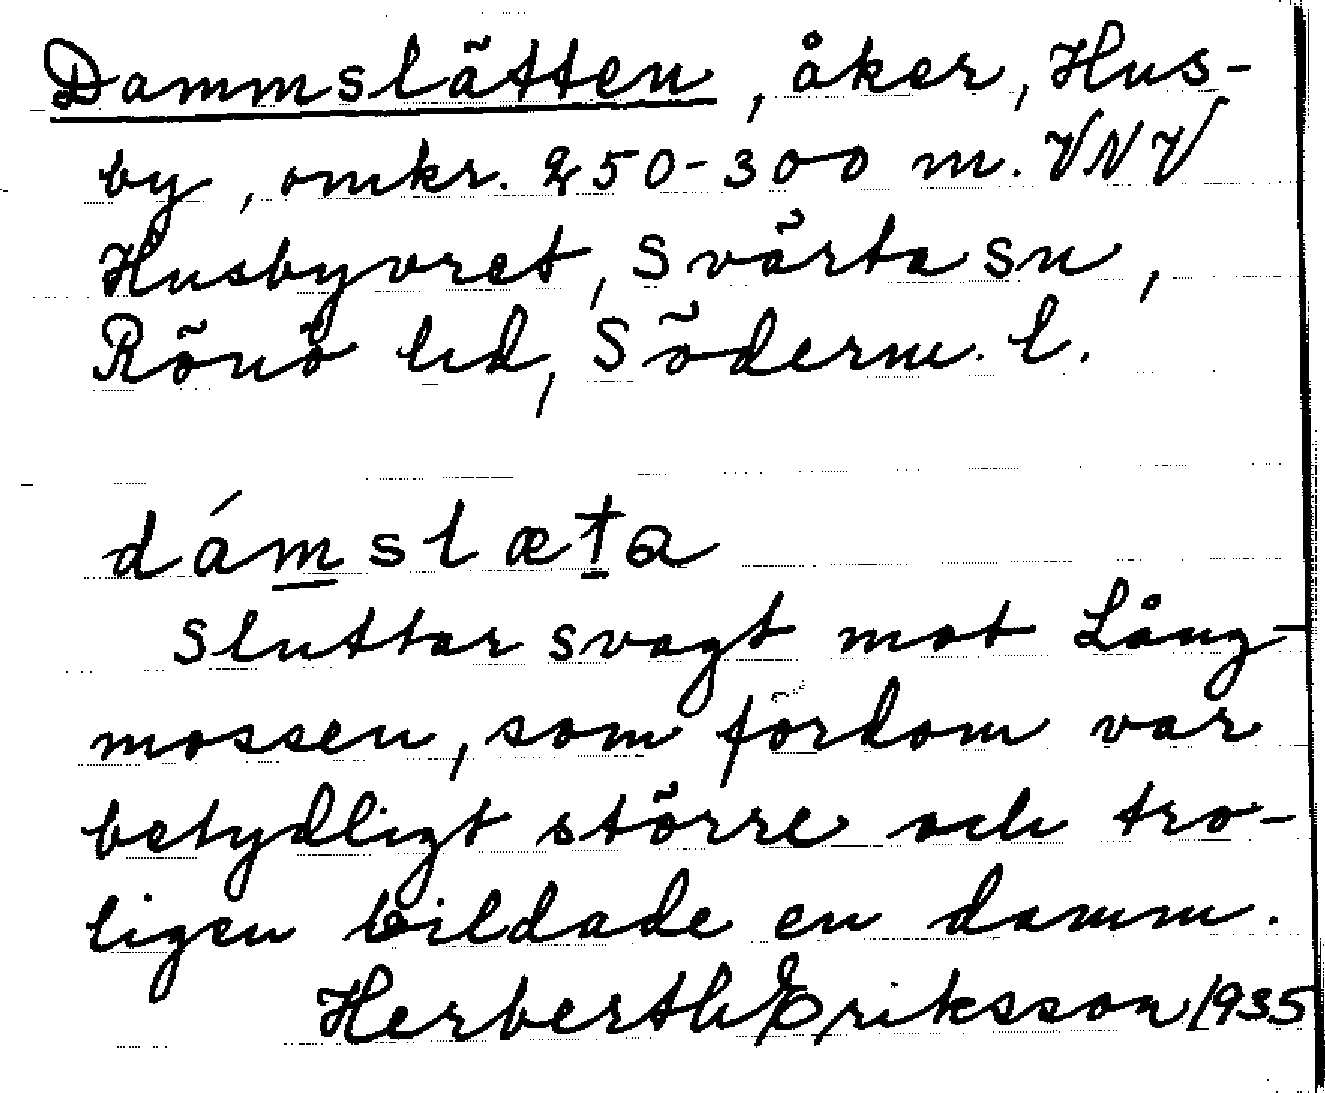 Dammslätten, åker, Hus-
by, omkr. 250-300 m. VNV
Husbyvret, Svärta sn,
Rönö hd, Söderm. l.
dámslæta
Sluttar svagt mot Lång-
mossen, som fordom var
betydligt större och tro-
ligen bildade en damm.
Herberth Eriksson 1935